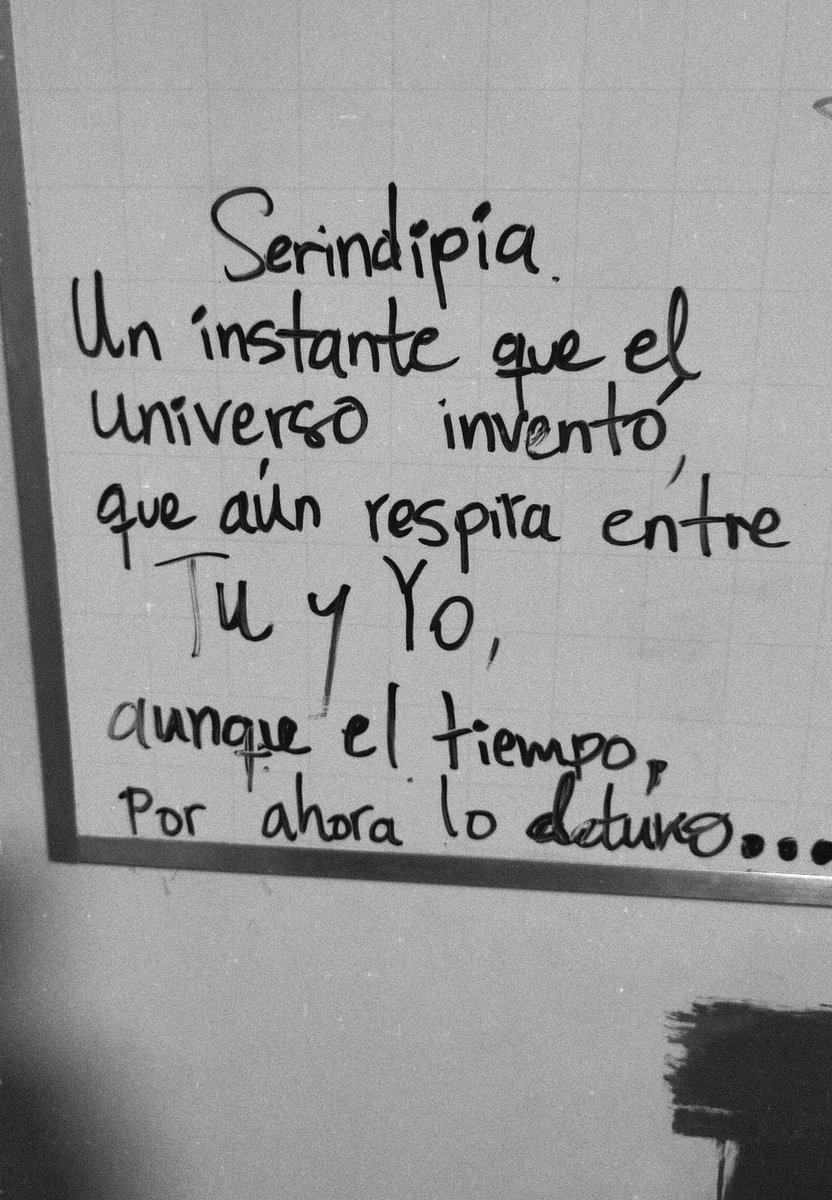 Serindipia.
Un instante que el
universo inventó,
que aún respira entre
Tu y Yo,
aunque el tiempo,
Por ahora lo detuvo...